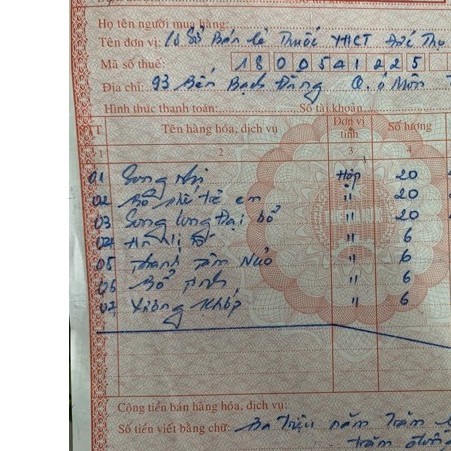 Họ tên người mua hàng:
Tên đơn vị: Cơ Sở Bán Lẻ Thuốc YHCT Đức Thọ
Mã số thuế: 1800541225
Địa chỉ: 93 Bến Bạch Đằng Q. Ô Môn
Hình thức thanh toán: Số tài khoản
TT Tên hàng hóa, dịch vụ Đơn vị tính Số lượng
1 2 3 4
01 Song Nhi Hộp 20
02 Bổ phế trẻ em " 20
03 Song Long Đại bổ " 20
04 " 6
05 Thanh Tâm Ngủ " 6
06 Bổ " 6
07 Xương Khớp " 6
Cộng tiền bán hàng hóa, dịch vụ:
Số tiền viết bằng chữ: Ba Triệu năm Trăm
trăm đồng